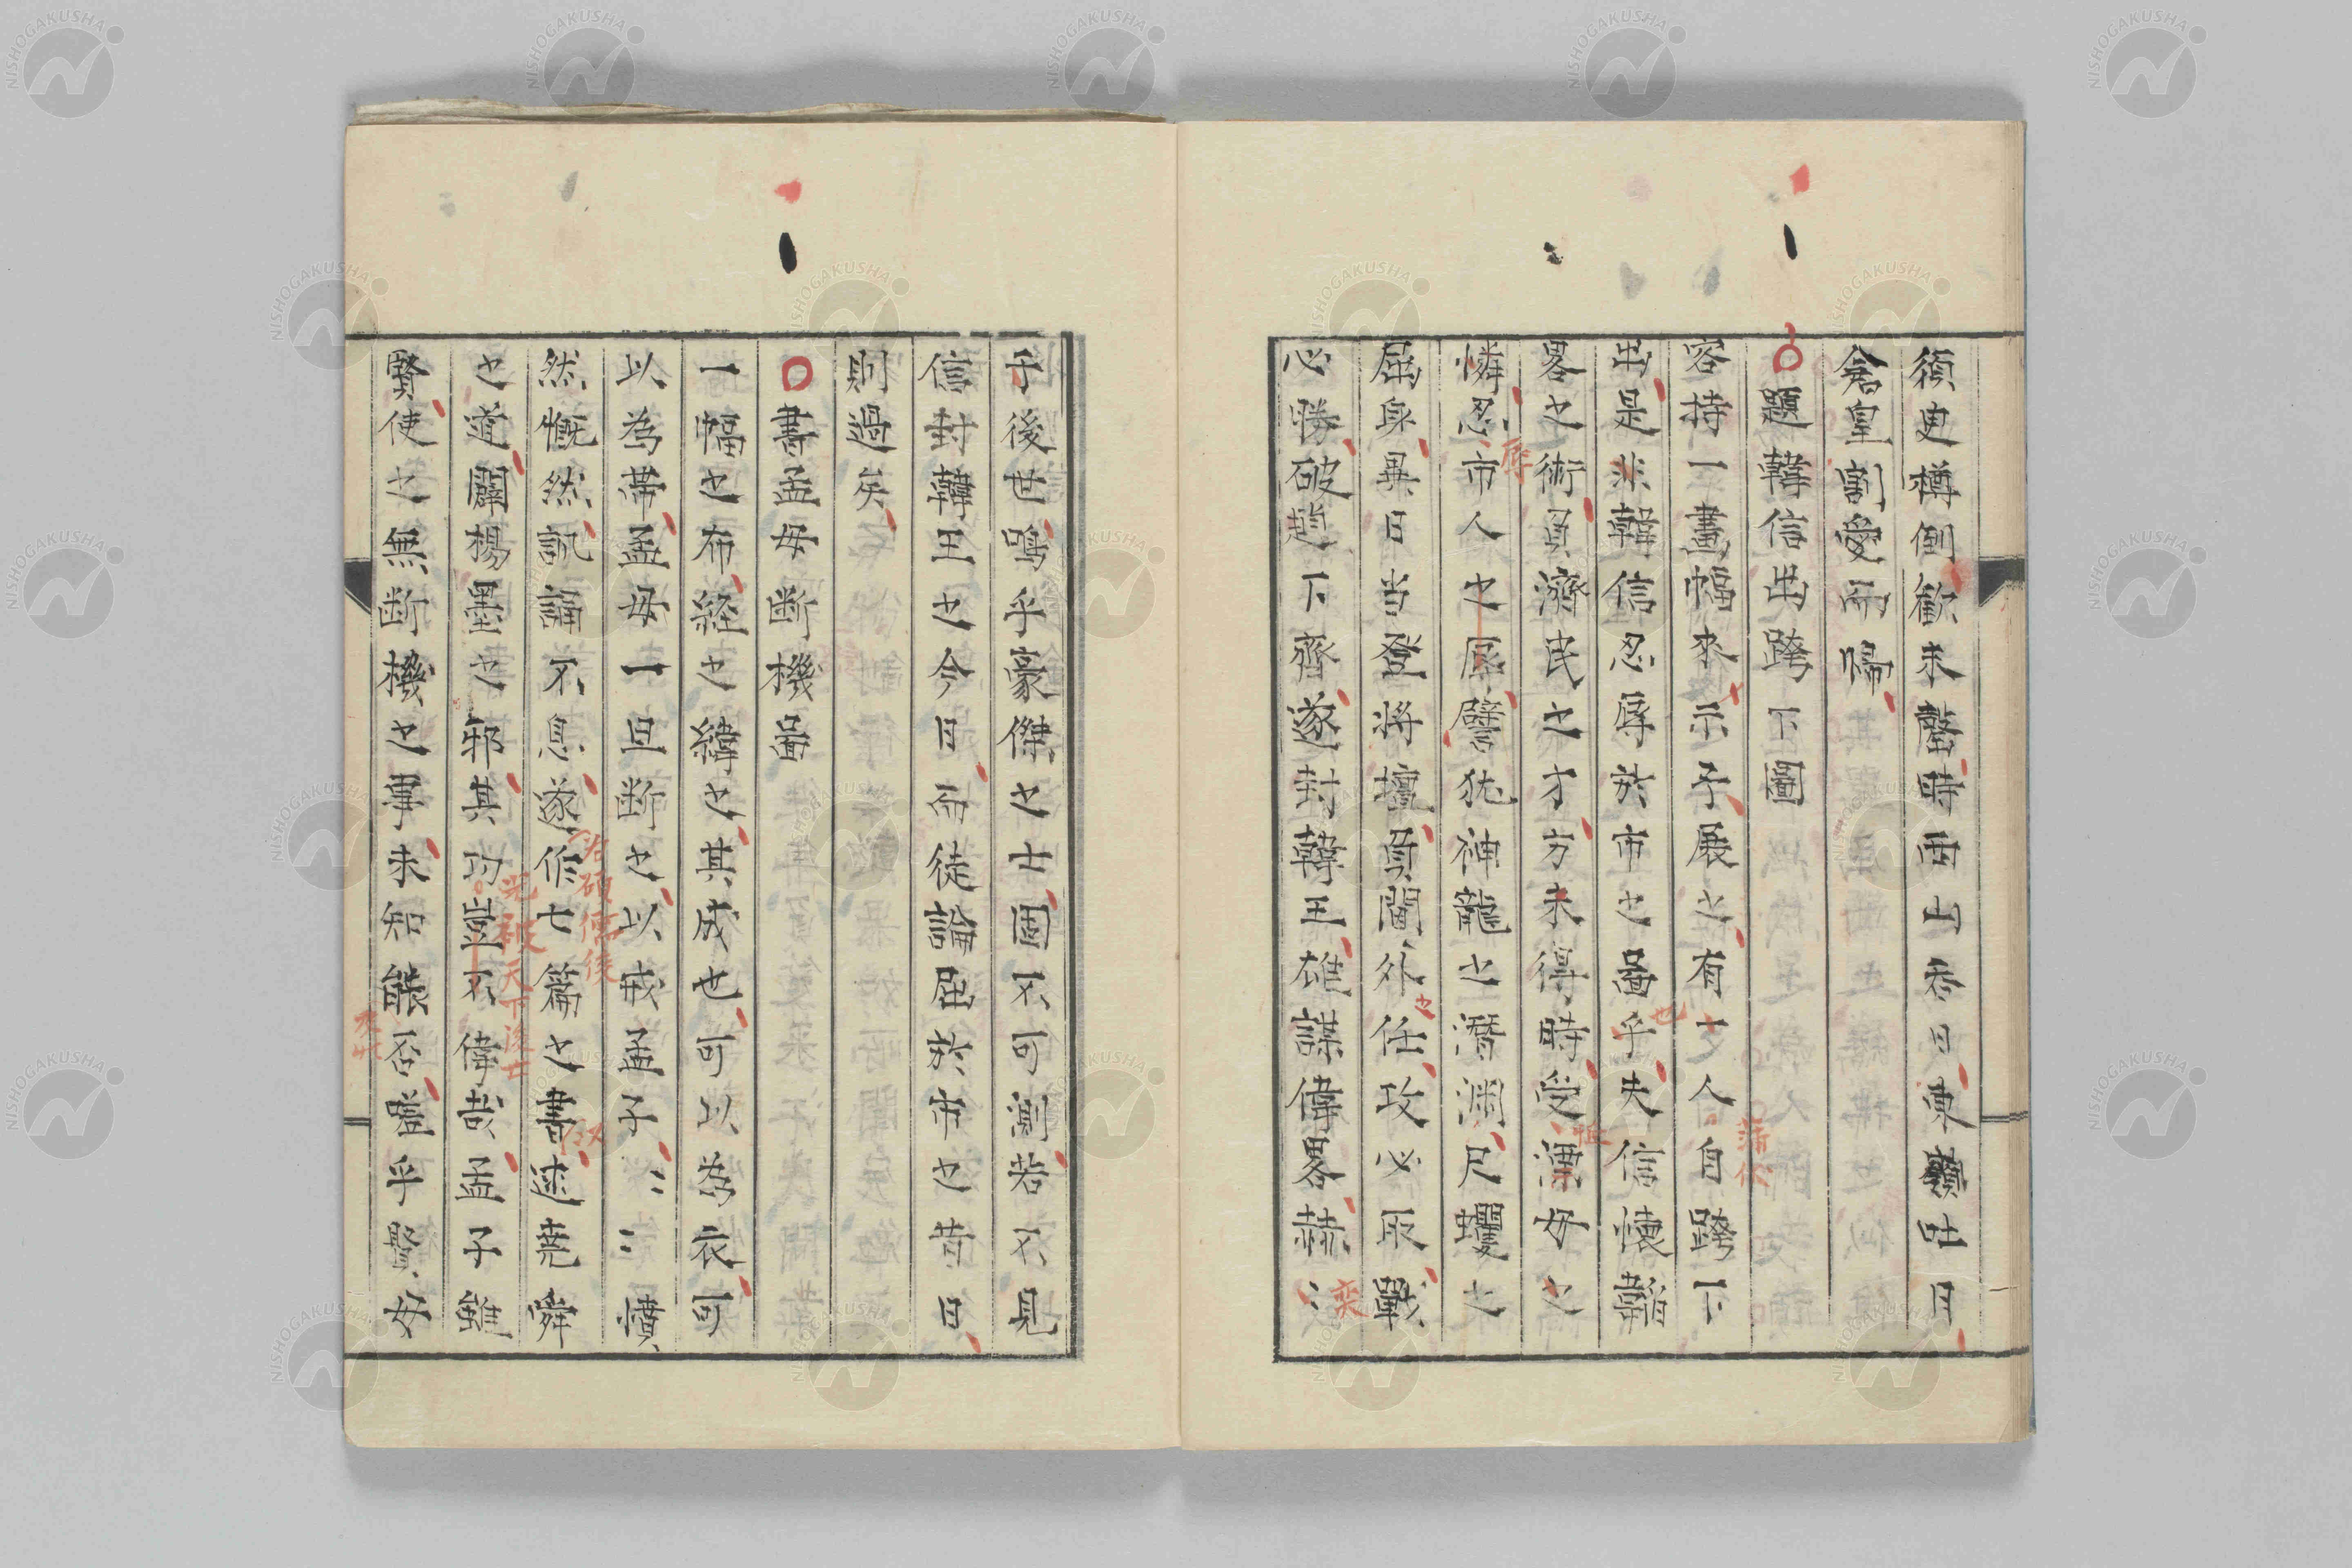 須更樽倒歓未罄時西山呑日東嶺吐月
倉皇割愛而帰
題韓信出跨下圖
客持一畫幅来示予予展之有少人自跨下
出是非韓信忍辱於市之啚乎夫信懐韜
畧之術員済民之才方未得時受漂母之
憐忍市人之辱譬犹神龍之潜渊尺蠖之
屈身異日当登将壇員閫外任攻必取戰
必勝破趙下齊遂封韓王雄謀偉畧赫〻
乎後世嗚乎豪傑之士固不可測若不見
信封韓王之今日而徒論屈於市之昔日
則過矣
書孟母断機啚
一幅之布経之緯之其成也可以為衣可
以為帯孟母一旦断之以戒孟子〻〻憤
然慨然訊誦不息遂作七篇之書述堯舜
之道闢楊墨之邪其功豈不偉哉孟子雖
賢使之無断機之事未知能否噫乎賢母
辱
也
蒲伏
之
奕
若碩儒後
光被天下後世
NISHOGAKUSHA